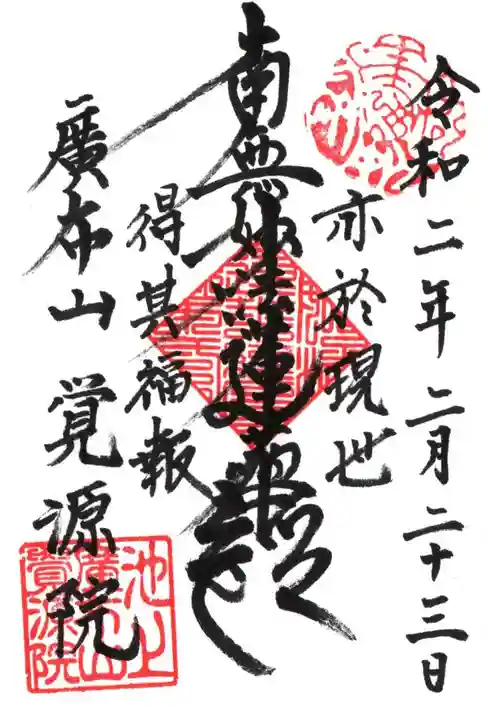 令和二年二月二十三日
亦於現世
南無妙法蓮華経
得其福報
廣布山 覚源院
池上
廣布山
覺源院